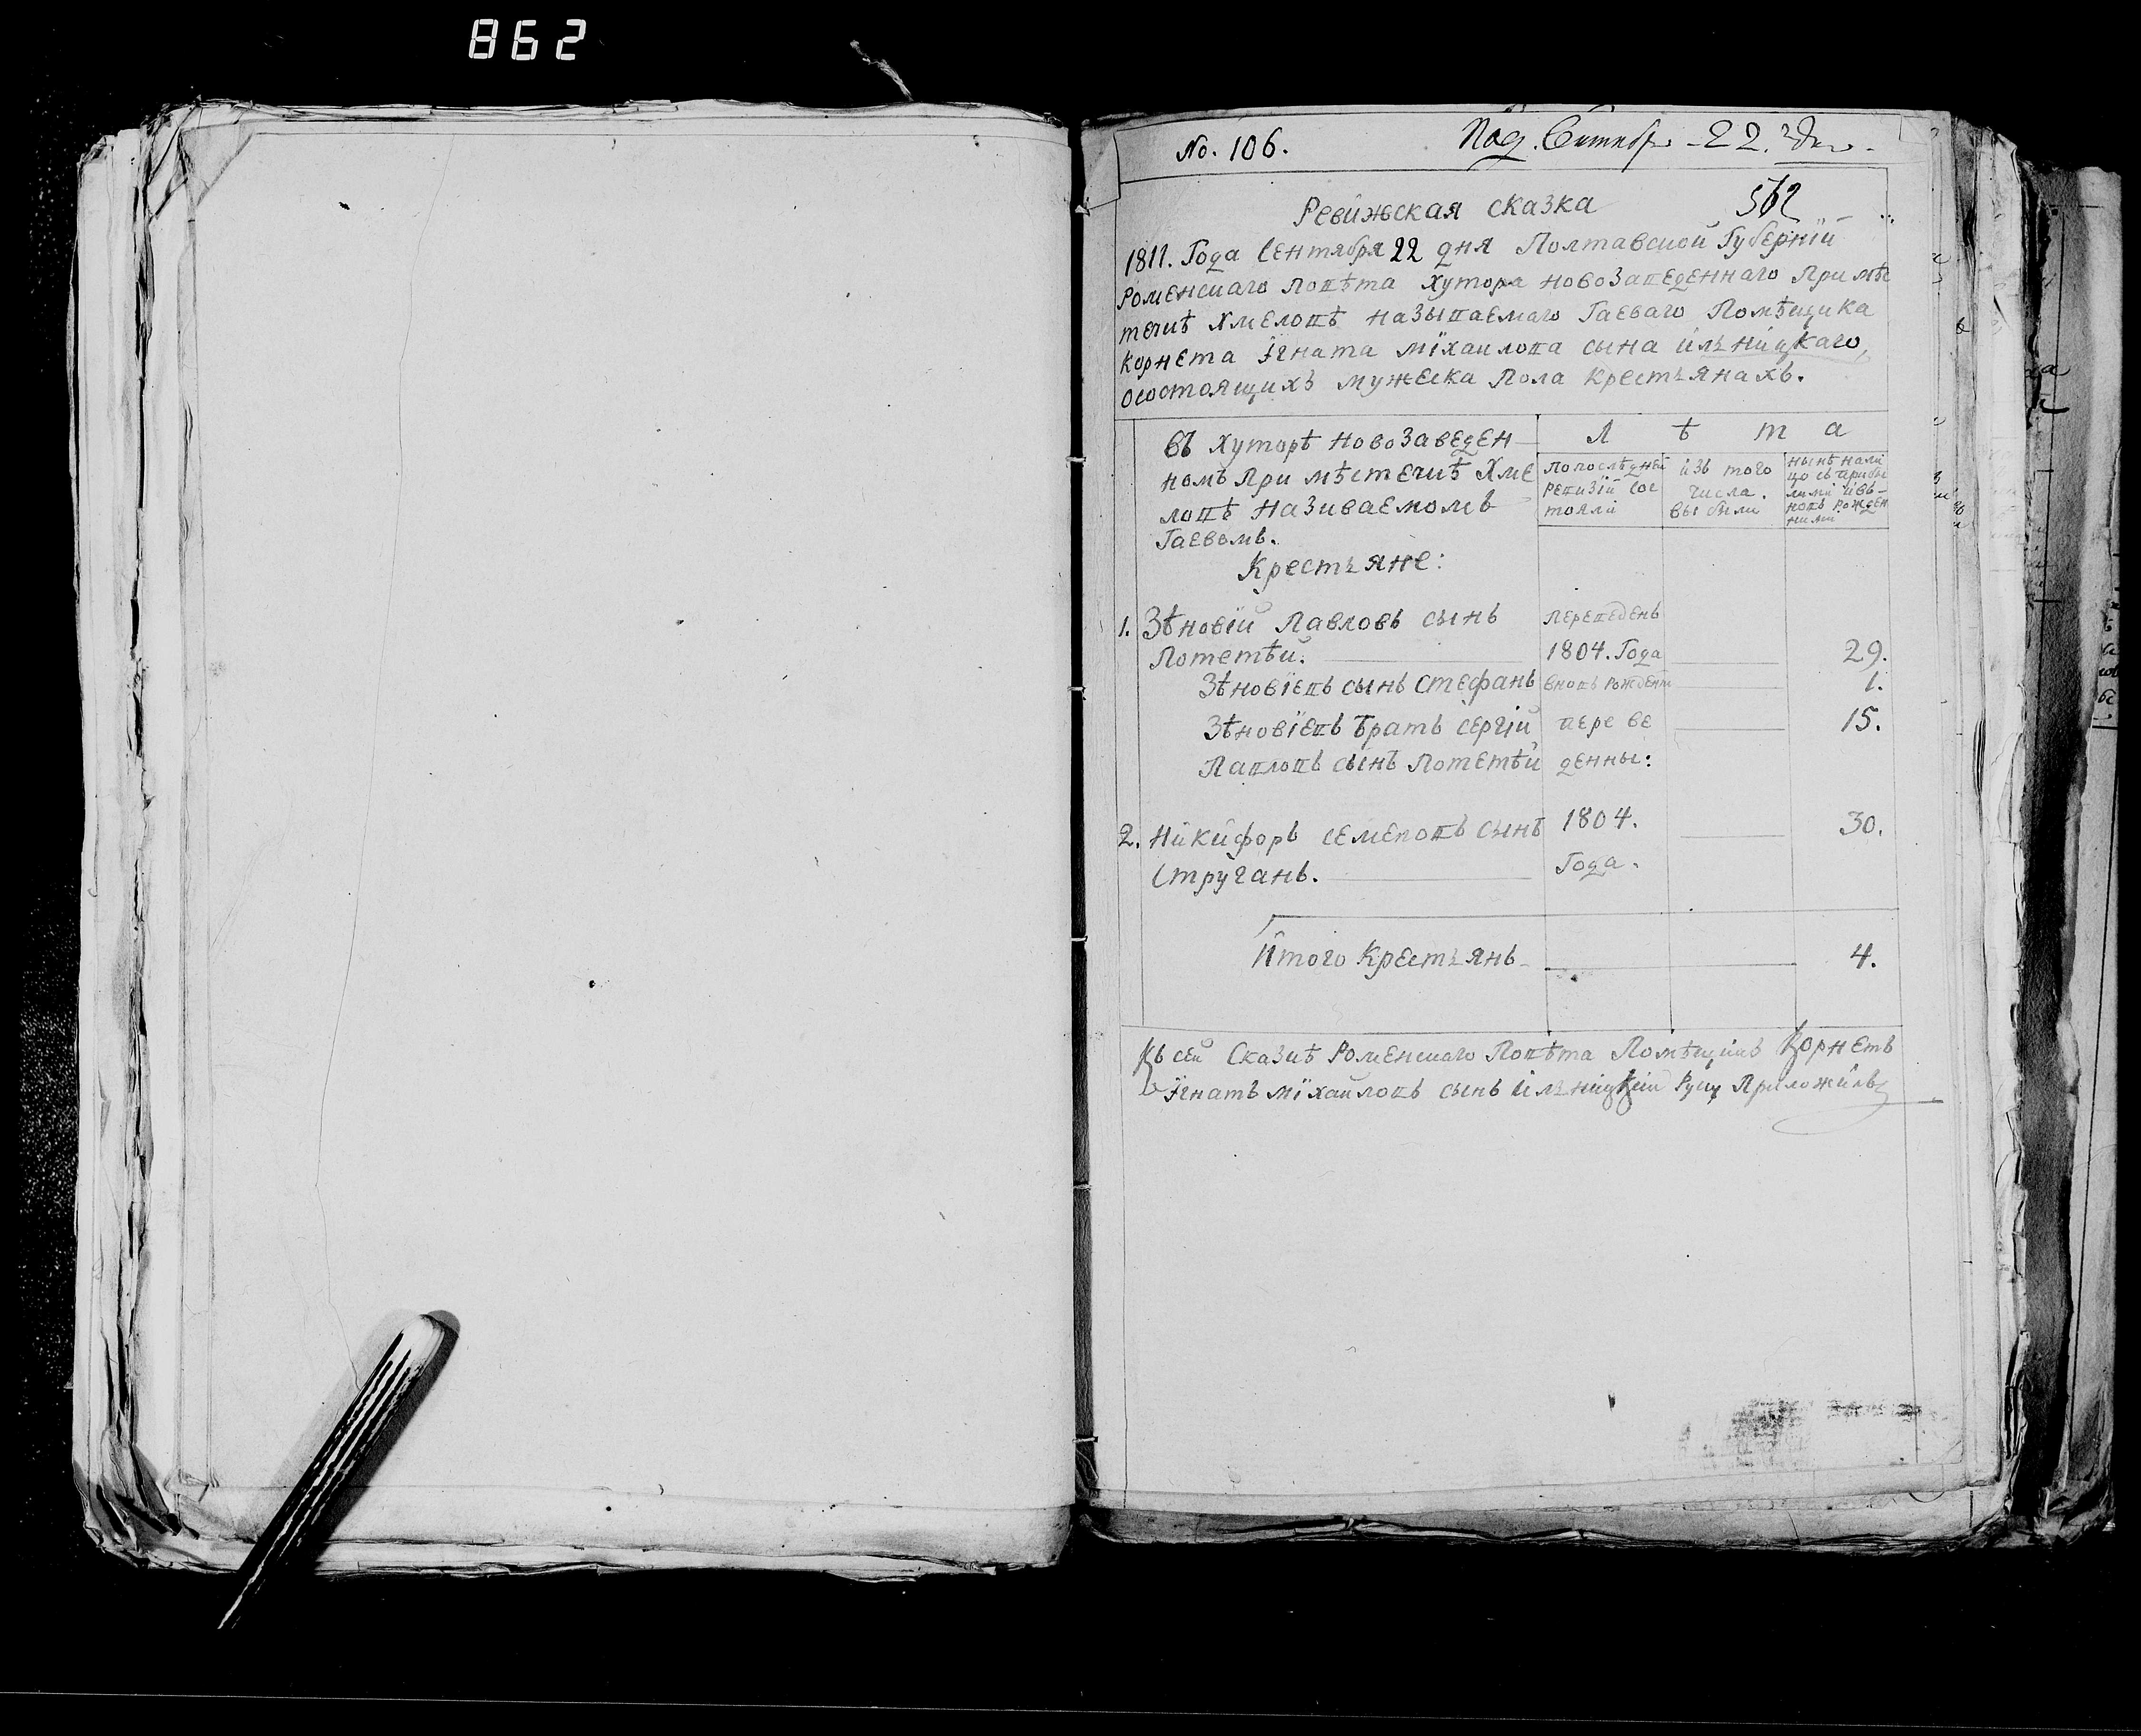 862
No. 106.
Под. Сентября 22. дня
562
Ревижская сказка
1811. Года Сентября 22 дня Полтавской Губернїи
Роменскаго повѣта хутора новозаведеннаго при мѣс
течкѣ Хмеловѣ называемаго Гаеваго Помѣщика
Корнета Ігната Міхаилова сына Илъницкаго,
осостоящихъ мужеска пола крестъянахъ.
въ хуторѣ новозаведен
номъ при мѣстечкѣ Хме
ловѣ називаемомъ
Гаевомъ.
Лѣта
попослѣдней
ревизїи сос
тояли
изъ того
числа.
выбыли
нынѣ нали
цо съ прибы
лими ивъ-
новь рожден
ними
Крестъяне:
1. Зѣновїй Павловъ сынъ переведенъ
Потетѣй. 1804. Года 29.
Зѣновїевъ сынъ Стефанъ вновь рожденъ 1.
Зѣновїевъ братъ Сергїй пере ве 15.
Павловъ сынъ Потетѣй денны:
2. Никифоръ Семеновъ сынъ 1804. 30.
Стругань. Года.
Итого Крестъянъ 4.
Къ сей Сказкѣ Роменскаго Повѣта Помѣщикъ Корнетъ
Ігнатъ Міхаиловъ сынъ Илъницкїй руку приложилъ